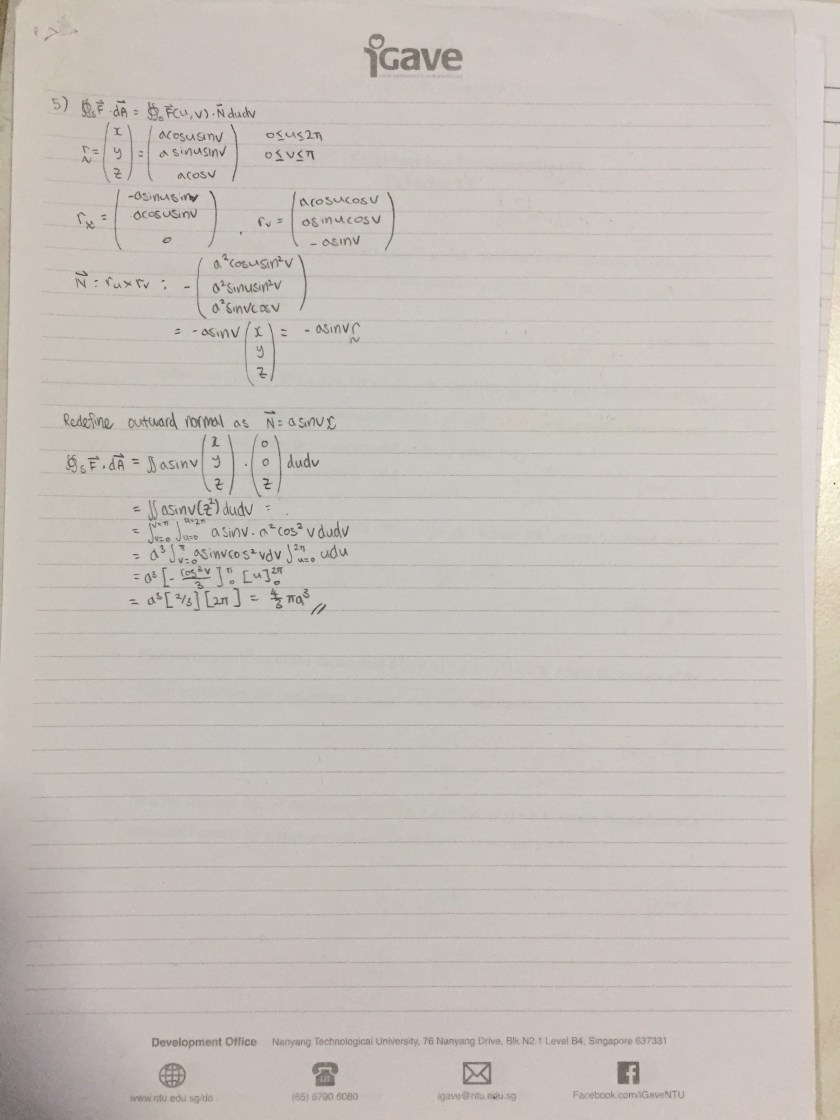 iGave
5) ∯ₛ F⃗ · dA⃗ = ∯ₛ F⃗(u,v) · N⃗ dudv
r = (x y z) = (acosusinv asinusinv acosv) 0≤u≤2π 0≤v≤π
rᵤ = (-asinusinv acosusinv 0), rᵥ = (acosucosv asinucosv -asinv)
N⃗ = rᵤ × rᵥ : -(a²cosusin²v a²sinusin²v a²sinvcosv)
= -asinv (x y z) = -asinv r
Redefine outward normal as N⃗ = asinv r
∯ₛ F⃗ · dA⃗ = ∬ asinv (x y z) · (0 0 z) dudv
= ∬ asinv(z²) dudv =
= ∫ᵥ₌₀^{v=π} ∫ᵤ₌₀^{u=2π} asinv · a²cos²v dudv
= a³ ∫ᵥ₌₀^π asinvcos²v dv ∫ᵤ₌₀^{2π} u du
= a³ [-cos³v/3]₀^π [u]₀^{2π}
= a³ [2/3] [2π] = 4/3 πa³ //
Development Office Nanyang Technological University, 76 Nanyang Drive, Blk N2.1 Level B4, Singapore 637331
www.ntu.edu.sg/do (65) 6790 6080 igave@ntu.edu.sg Facebook.com/iGaveNTU